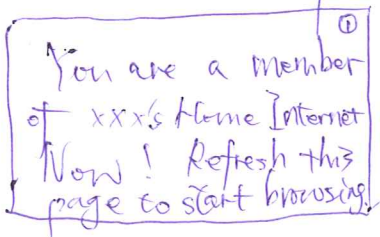 ①
You are a member
of xxx's Home Internet
Now! Refresh this
page to start browsing